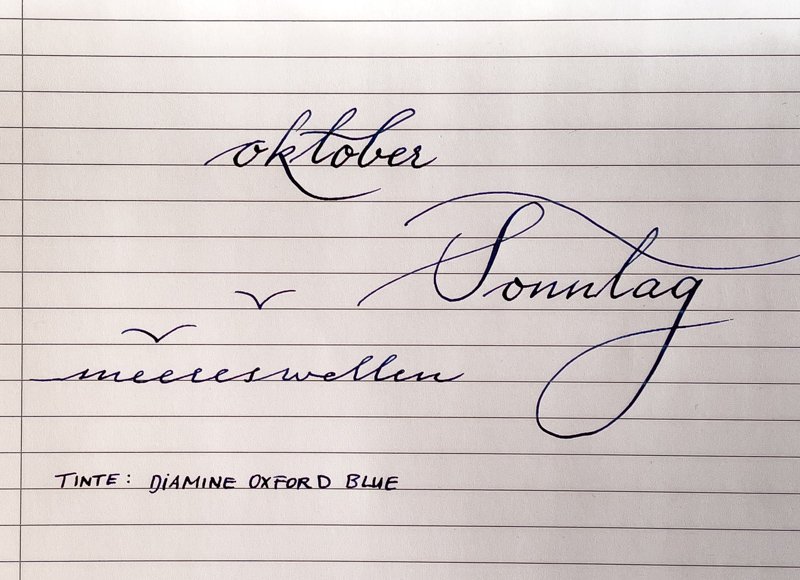 oktober
Sonntag
meereswellen
TINTE: DiAMINE OXFORD BLUE